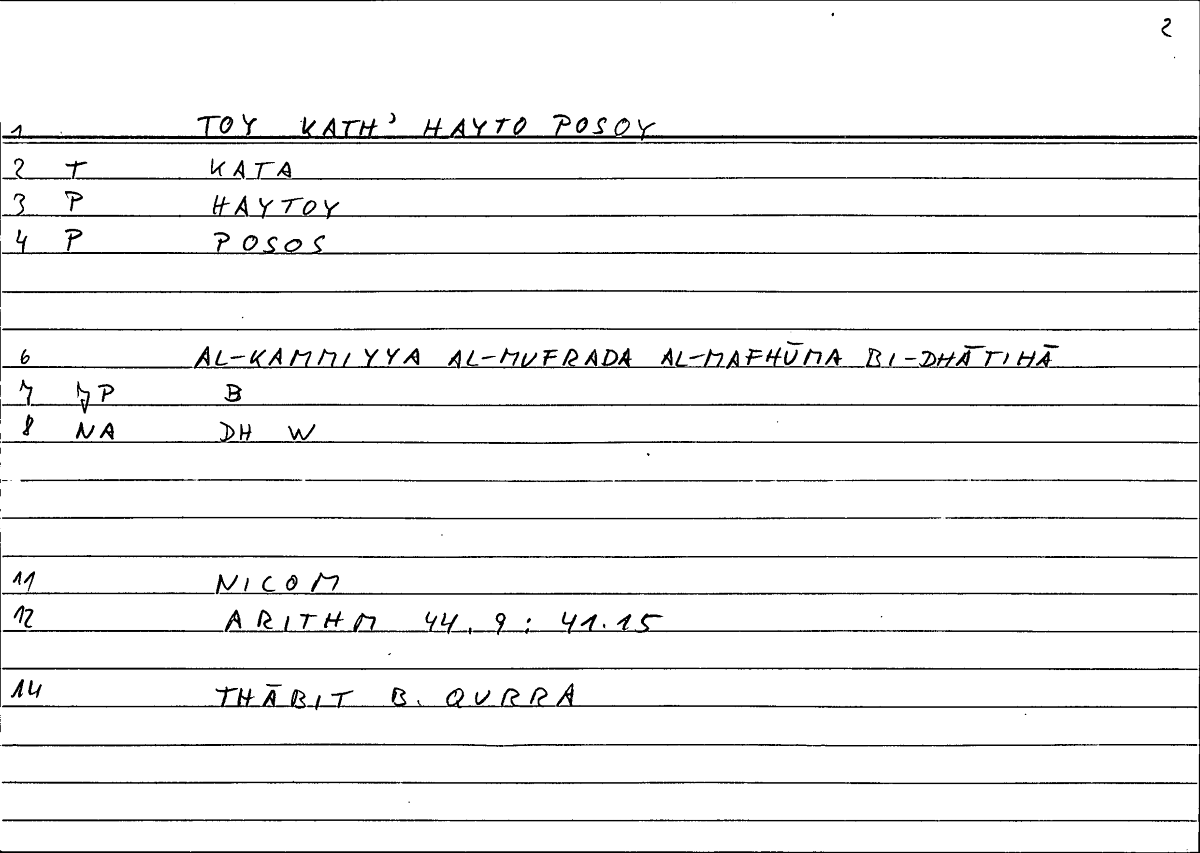 2
1 TOY KATH' HAYTO POSOY
2 T KATA
3 P HAYTOY
4 P POSOS
6 AL-KAMMIYYA AL-MUFRADA AL-MAFHŪMA BI-DHĀTIHĀ
7 P B
8 NA DH W
11 NICOM
12 ARITHM 44.9: 41.15
14 THĀBIT B. QURRA